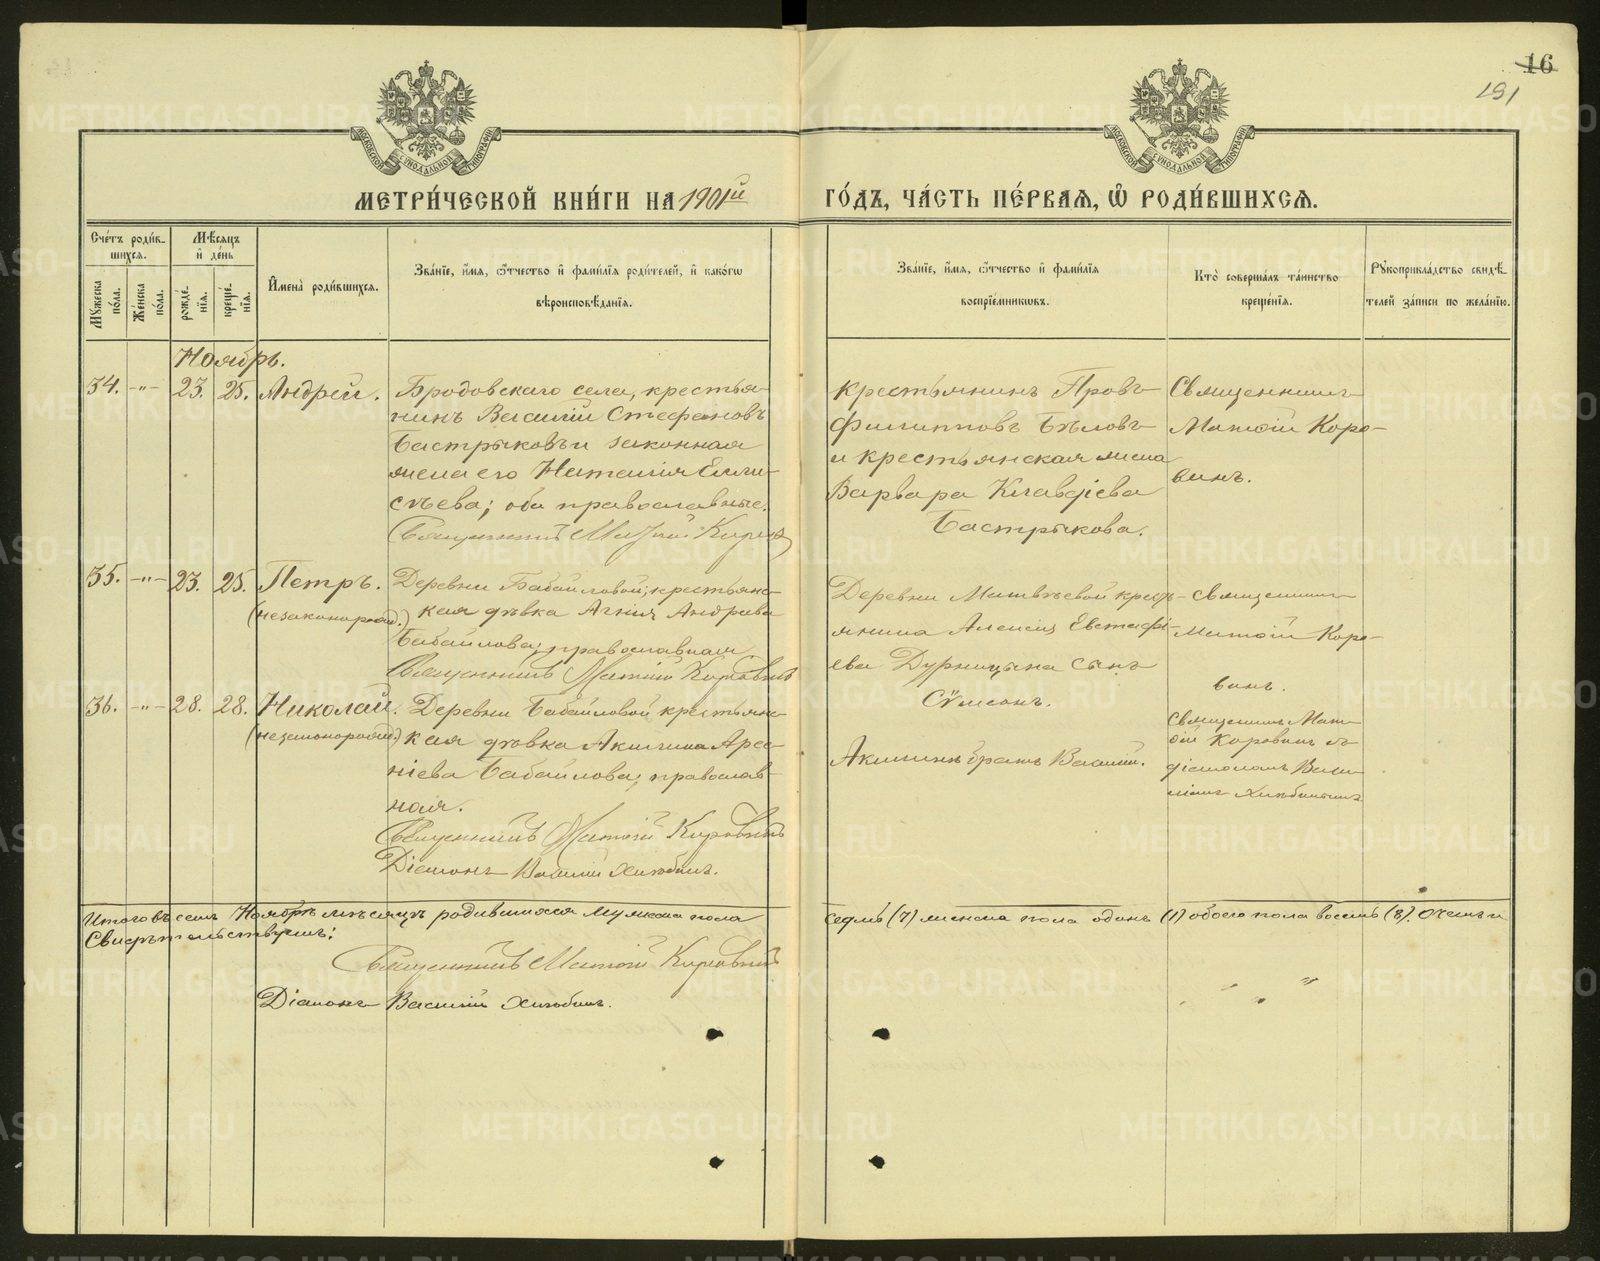 16
191
МЕТРИ́ЧЕСКОЙ КНИ́ГИ НА 1901й ГО́ДЪ, ЧА́СТЬ ПЕ́РВАЯ, Ѿ РОДИ́ВШИХСЯ.
Сче́тъ роди́в-
шихся.
Мѣсяцъ
и де́нь
Мꙋжеска по́ла.
Же́нска по́ла.
рожде́-
нїя.
креще́-
нїя.
Имена̀ роди́вшихся.
Зва́нїе, и́мя, ѻ҆́тчество и фами́лїя роди́телей, и како́гѡ
вѣроисповѣ́данїя.
Зва́нїе, и́мя, ѻ҆́тчество и фами́лїя
воспрїе́мникѡвъ.
Кто̀ соверша́лъ та́инство
креще́нїя.
Рꙋкоприкла́дство свидѣ́-
телей за́писи по жела́нїю.
Ноябрь.
34. -"- 23. 25. Андрей.
Бродовскаго села, крестья-
нинъ Василій Стефановъ
Бастрыковъ и законная
жена его Наталія Ели-
сѣева; оба православные.
Священникъ Матѳій
Крестьянинъ Провъ
Филипповъ Бѣловъ
и крестьянская жена
Варвара Клавдіева
Бастрыкова.
Священникъ
Матѳій Коро-
винъ.
35. -"- 23. 25. Петръ.
(незаконорожд.)
Деревни Бабаиловой, крестьянс-
кая дѣвка Агнія Андреева
Бабаилова; православная
Священникъ Матѳій Коровинъ
Деревни Матвѣевой кресть-
янина Алексія Евстафі-
ева Дурницына сынъ
Сѵмеонъ.
Священникъ
Матѳій Коро-
винъ.
36. -"- 28. 28. Николай.
(незаконорожд.)
Деревни Бабаиловой крестьянс-
кая дѣвка Акилина Арсе-
ніева Бабаилова; православ-
ная.
Священникъ Матѳій Коровинъ
Діаконъ Василій Хлѣбинъ.
братъ Василій.
Священникъ Мат-
ѳій Коровинъ съ
діакономъ Васи-
ліемъ Хлѣбинымъ
Итого въ семъ Ноябрѣ мѣсяцѣ родившихся мужеска пола седмь (7) женска пола одинъ (1) обоего пола восемь (8). О чемъ и
Свидѣтельствуемъ:
Священникъ Матѳій Коровинъ
Діаконъ Василій Хлѣбинъ.
METRIKI.GASO-URAL.RU